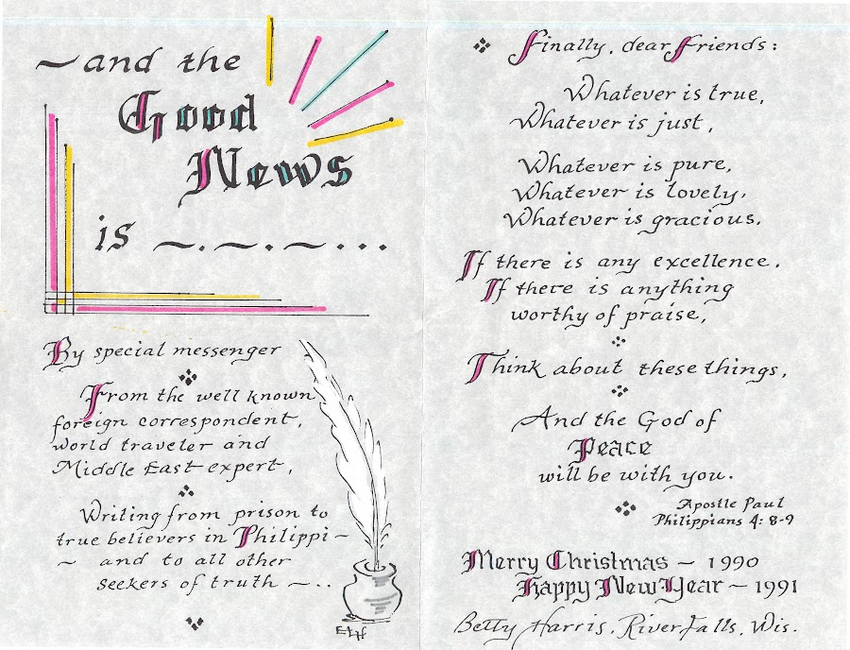 ~and the
Good
News
is ~.~.~...
By special messenger
From the well known
foreign correspondent,
world traveler and
Middle East expert,
Writing from prison to
true believers in Philippi~
~ and to all other
seekers of truth ~..
ELH
Finally, dear friends:
Whatever is true,
Whatever is just,
Whatever is pure,
Whatever is lovely,
Whatever is gracious.
If there is any excellence.
If there is anything
worthy of praise,
Think about these things,
And the God of
Peace
will be with you.
Apostle Paul
Philippians 4: 8-9
Merry Christmas ~ 1990
Happy New Year ~ 1991
Betty Harris, River Falls, Wis.